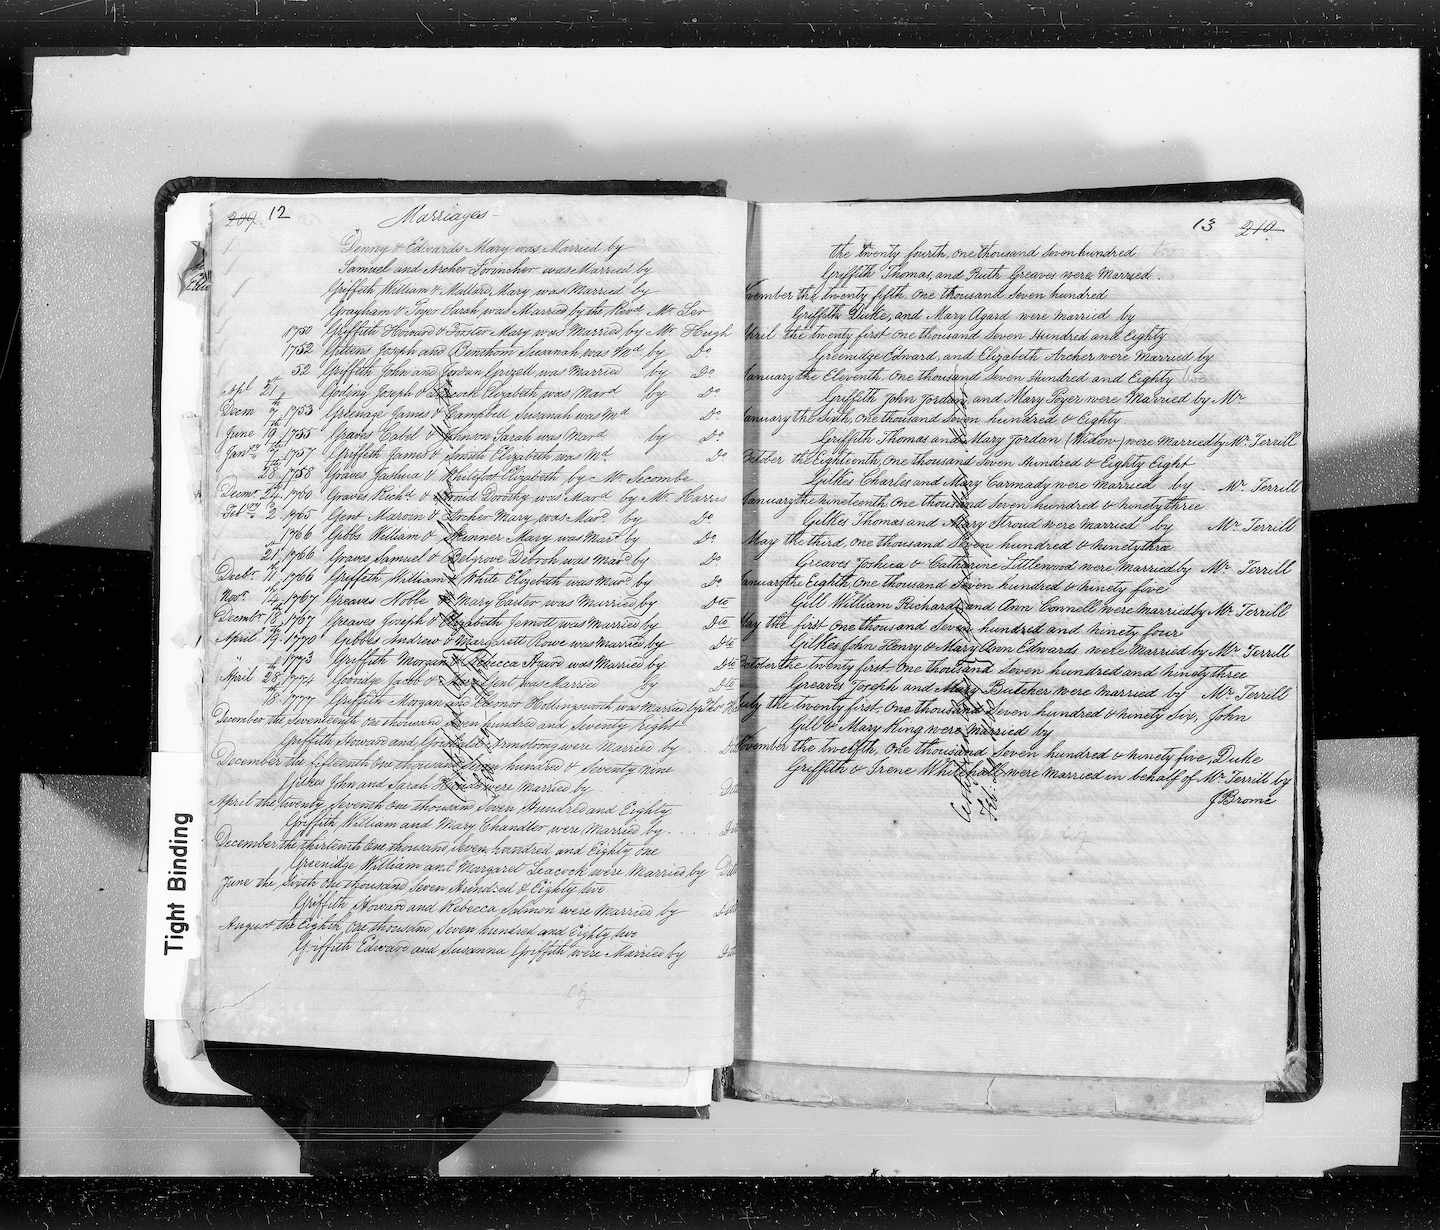 209 12 Marriages
Denny & Edwards Mary was Married by
Samuel and Archer was Married by
Griffith William & Mallard Mary was Married by
Grayham & Poyer Sarah was Married by the Revd Mr
1750 Griffith Howard & Foster Mary was Married by Mr Hugh
1752 Gittens Joseph and Benthom Susanah was Md by Do
52 Griffith John and Jordan Grizell was Married by Do
Apl 21 Goding Joseph & Elizabeth was Mard by Do
Decm 7th 1753 Greenage James & Campbell Susanah was Md Do
June 19th 1755 Graves Cabel & Johnson Sarah was Mard by Do
Janry 7th 1757 Griffith James & Smith Elizabeth was Md Do
28th 1758 Graves Joshua & Whitfoot Elizabeth by Mr Secombe
Decmr 24 1760 Graves Richd & Dorothy was Mard by Mr Harris
Febry 2 1765 Gent Marvin & Archer Mary was Mard by Do
1766 Gibbs William & Skinner Mary was Mard by Do
21 1766 Graves Samuel & Belgrove Deborh was Mard by Do
Decbr 11 1766 Griffith William & White Elizebeth was Mard by Do
Novr 1767 Greaves Noble & Mary Carter was Married by Dto
Decembr 18th 1767 Greaves Joseph & Elizabeth was Married by Dto
April 1770 Gibbs Andrew & Margrett Rowe was Married by Dto
1773 Griffith Morgan & Rebecca was Married by Dto
April 28th 1774 Goodge Jacob & was Married by Dto
18th 1777 Griffith Morgan and Eleonor Hollingsworth was Married by
December the Seventeenth one thousand Seven hundred and Seventy Eight
Griffith Howard and Armstrong were Married by
December the fifteenth One thousand Seven hundred & Seventy nine
Gilkes John and Sarah were Married by
April the twenty Seventh One thousand Seven Hundred and Eighty
Griffith William and Mary Chandler were Married by
December the thirteenth One thousand Seven hundred and Eighty one
Greenidge William and Margaret Leacock were Married by
June the Sixth One thousand Seven Hundred & Eighty two
Griffith Howard and Rebecca Salmon were Married by
August the Eighth, One thousand, Seven hundred and Eighty two
Griffith Edward and Susanna Griffith were Married by
13 210
the twenty fourth, one thousand Seven hundred
Griffith Thomas, and Ruth Greaves were Married
vember the twenty fifth, one thousand Seven hundred
Griffith Duke, and Mary Agard were married by
April the twenty first One thousand Seven Hundred and Eighty
Greenidge Edward, and Elizabeth Archer were Married by
anuary the Eleventh, One thousand Seven Hundred and Eighty
Griffith John Jordan, and Mary Poyer were Married by Mr
anuary the Sixth, One thousand Seven hundred & Eighty
Griffith Thomas and Mary Jordan (Widow) were Married by Mr Terrill
October the Eighteenth, One thousand Seven Hundred & Eighty Eight
Gilkes Charles and Mary Carmady were Married by Mr Terrill
January the nineteenth One thousand Seven hundred & ninety three
Gilkes Thomas and Mary Stroud were Married by Mr Terrill
May the third, One thousand Seven hundred & Ninety three
Greaves Joshua & Catharine Littlewood were Married by Mr Terrill
January the Eighth, One thousand Seven hundred & ninety five
Gill William Richard and Ann Connell were Married by Mr Terrill
May the first One thousand Seven hundred and ninety four
Gilkes John Henry & Mary Ann Edwards were Married by Mr Terrill
October the twenty first One thousand Seven hundred and ninety three
Greaves Joseph and Mary Butcher were Married by Mr Terrill
July the twenty first, One thousand Seven hundred & ninety Six, John
Gill & Mary King were Married by
November the twelfth, One thousand Seven hundred & ninety five, Duke
Griffith & Irene Whitehall were Married in behalf of Mr Terrill by
J Brome
Tight Binding